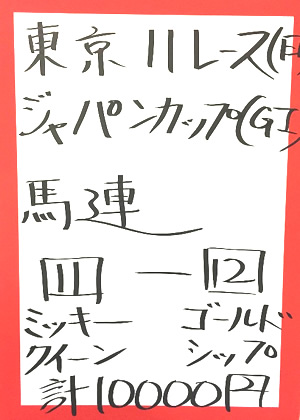 東京11レース(
ジャパンカップ(GI)
馬連
11 — 12
ミッキー ゴールド
クイーン シップ
計10000円